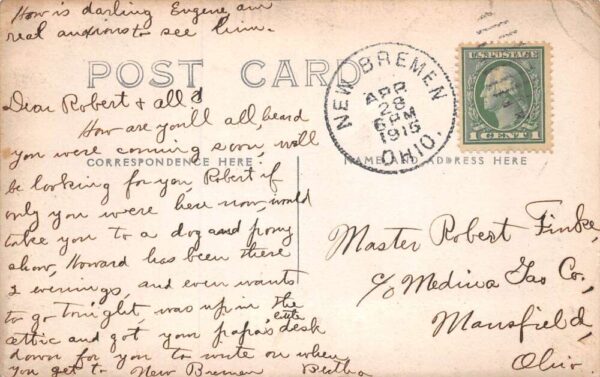 How is darling Eugene, am
real anxious to see him.
POST CARD
Dear Robert & all,
How are you'll all, heard
you were coming soon, will
CORRESPONDENCE HERE
be looking for you, Robert if
only you were here now, would
take you to a dog and pony
show, Howard has been there
2 evenings, and even wants
to go tonight, was up in the
attic and got your papa's little desk
down for you to write on when
you get to New Bremen Bertha
NEW BREMEN
APR
28
6 PM
1915
OHIO.
U.S. POSTAGE
1 CENT 1
NAME AND ADDRESS HERE
Master Robert Finke,
c/o Medina Gas Co,
Mansfield,
Ohio.